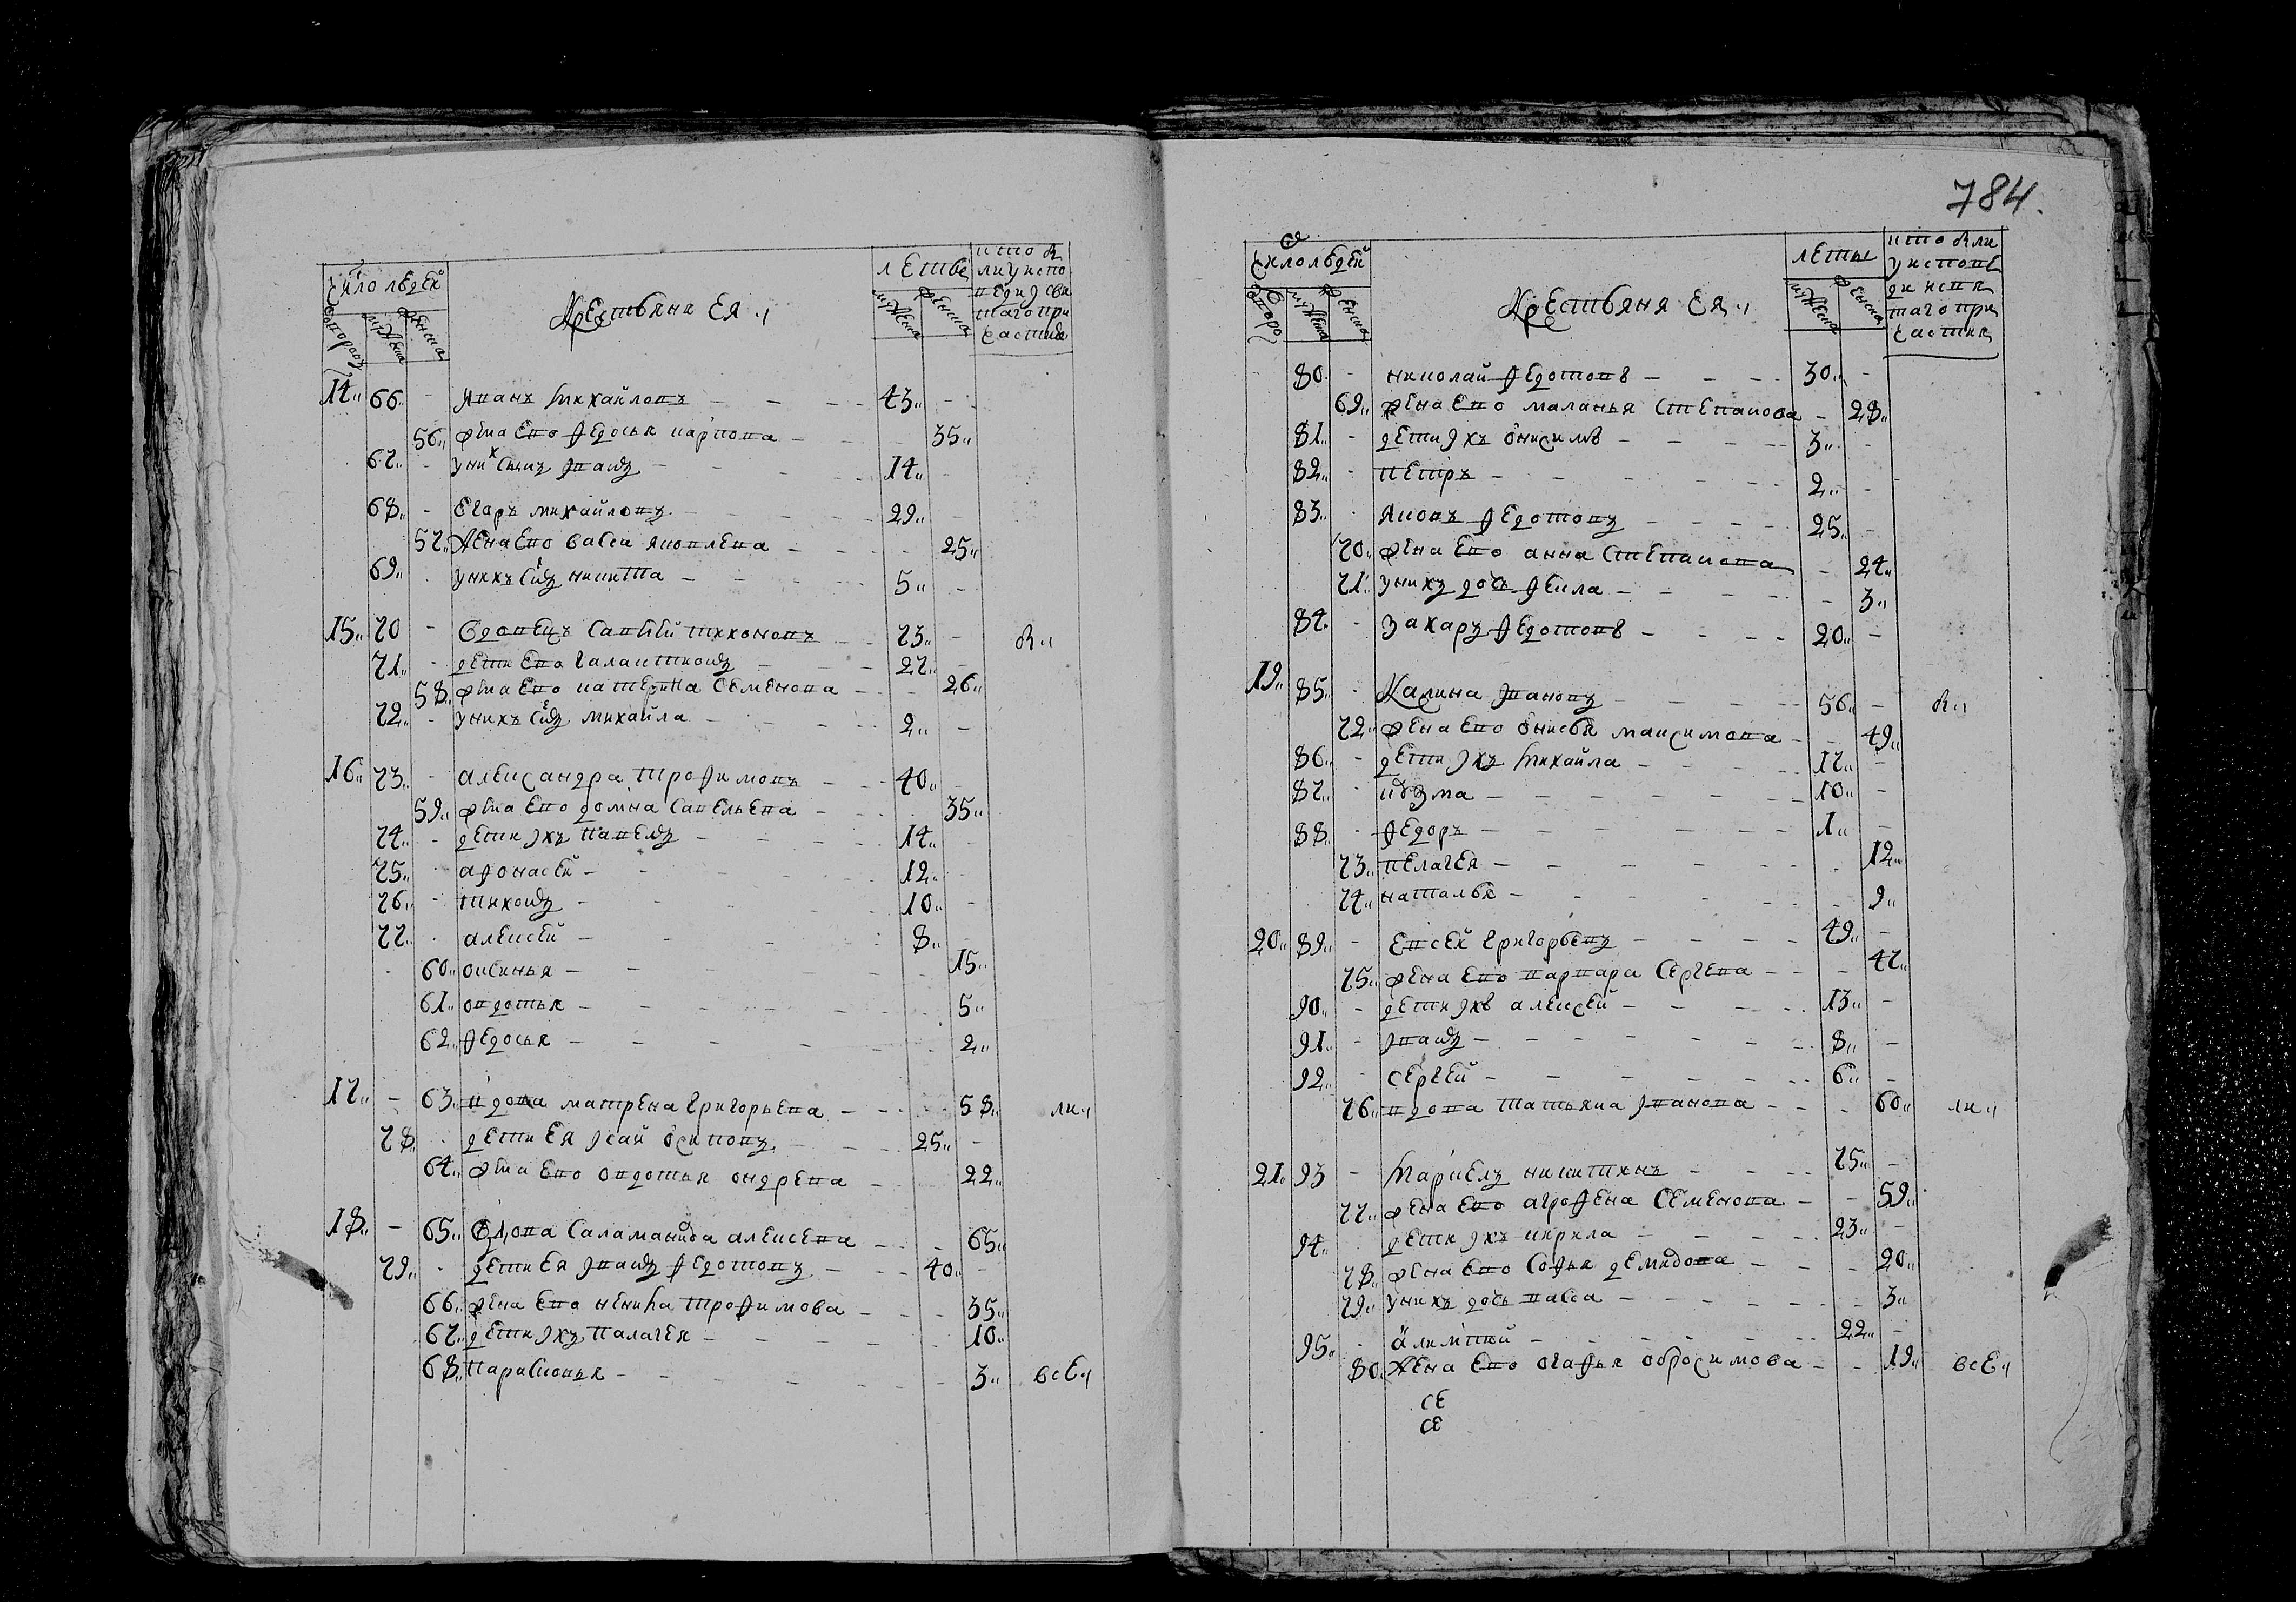 Число людей
Дворовъ
мужеска
женска
Крестьяня Ея
Летъ
мужеска
женска
кто бы
ли у испо
веди і свя
таго при
частия
14 66 - Иванъ Михайловъ - 43 -
56 жена ево Федосья Карпова - 35
67 - у них сынъ Іванъ - 14 -
68 - Егаръ Михайловъ - 29 -
57 жена ево васса яковлева - 25
69 - у нихъ снъ никита - 5 -
15 70 - вдовецъ Савелей тихоновъ - 73 -
71 - дети ево Галактионъ - 27 -
58 жена ево катерина Семенова - 26
72 - у нихъ снъ михайла - 2 -
16 73 - александра трофимовъ - 40 -
59 жена ево домна Савельева - 35
74 - дети іхъ павелъ - 14 -
75 - афонасей - 12 -
76 - тихонъ - 10 -
77 - алексей - 8 -
60 оксинья - 15
61 овдотья - 5
62 федосья - 2
17 - 63 вдова матрена григорьева - 58
78 - дети ея ісай осиповъ - 25 -
64 жена ево овдотья ондрева - 22
18 - 65 вдова Саламанида алексева - 65
79 - дети ея Іванъ Федотовъ - 40 -
66 жена ево ненила трофимова - 35
67 дети іхъ палагея - 10
68 парасковья - 3 все
784.
Число людей
двора
мужеска
женска
Крестьяня Ея
леты
мужеска
женска
кто были
у исповѣ
ди и свя
таго при
частия
80 - николай Федотовъ - 30 -
69 жена ево маланья Степанова - 28
81 - дети іхъ онисимъ - 3 -
82 - петръ - 2 -
83 - яковъ Федотовъ - 25 -
70 жена ево анна Степанова - 24
71 у нихъ дочь фекла - 3
84 - захаръ Федотовъ - 20 -
19 85 - Калина Івановъ - 56 -
72 жена ево онисья максимова - 49
86 - дети іхъ михайла - 17 -
87 - кузма - 10 -
88 - Федоръ - 1 -
73 пелагея - 12
74 наталья - 9
20 89 - евсей григорьевъ - 49 -
75 жена ево варвара Сергева - 47
90 - дети іхъ алексей - 13 -
91 - Іванъ - 8 -
92 - сергей - 6 -
76 вдова татьяна Іванова - 60
21 93 - Маркелъ никитинъ - 75 -
77 жена ево агрофена Семенова - 59
94 дети іхъ кирила - 23 -
78 жена ево Софья демидова - 20
79 у нихъ дочь васса - 3
95 - 22 -
80 жена ево огафья обросимова - 19 все
се
се